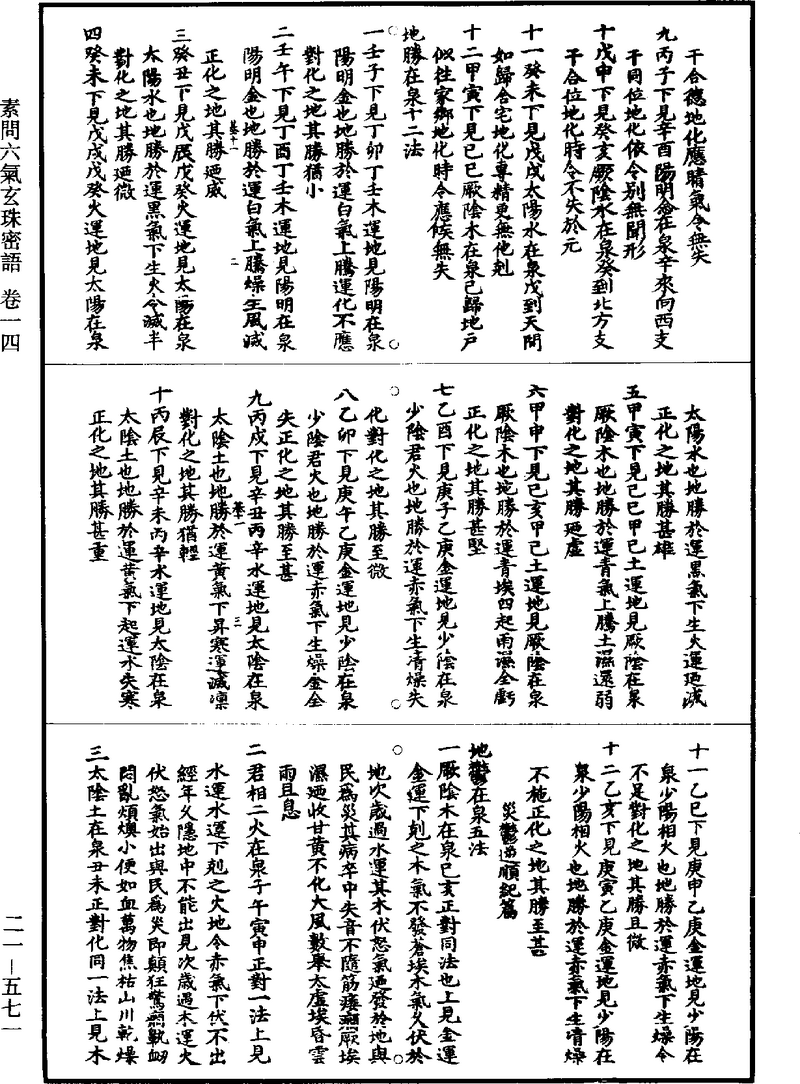 干合德地化應睹氣令無失
九丙子下見辛酉陽明金在泉辛來向西支
干同位地化依令別無聞形
十戊申下見癸亥厥陰木在泉癸到北方支
干合位地化時令不失於元
十一癸未下見戊戌太陽水在泉戊到天門
如歸合宅地化專精更無他剋
十二甲寅下見己巳厥陰木在泉己歸地戶
似往家鄉地化時令應候無失
地勝在泉十二法
一壬子下見丁卯丁壬木運地見陽明在泉
陽明金也地勝於運白氣上騰運化不應
對化之地其勝猶小
二壬午下見丁酉丁壬木運地見陽明在泉
陽明金也地勝於運白氣上騰燥生風減
正化之地其勝迺威
三癸丑下見戊辰戊癸火運地見太陽在泉
太陽水也地勝於運黑氣下生火令減半
對化之地其勝迺微
四癸未下見戊戌戊癸火運地見太陽在泉
太陽水也地勝於運黑氣下生火運迺減
正化之地其勝甚雄
五甲寅下見己巳甲己土運地見厥陰在泉
厥陰木也地勝於運青氣上騰土濕還弱
對化之地其勝迺虛
六甲申下見己亥甲己土運地見厥陰在泉
厥陰木也地勝於運青埃四起雨濕全虧
正化之地其勝甚堅
七乙酉下見庚子乙庚金運地見少陰在泉
少陰君火也地勝於運赤氣下生清燥失
化對化之地其勝至微
八乙卯下見庚午乙庚金運地見少陰在泉
少陰君火也地勝於運赤氣下生燥金全
失正化之地其勝至甚
九丙戌下見辛丑丙辛水運地見太陰在泉
太陰土也地勝於運黃氣下昇寒運減凜
對化之地其勝猶輕
十丙辰下見辛未丙辛水運地見太陰在泉
太陰土也地勝於運黃氣下起運水失寒
正化之地其勝甚重
十一乙巳下見庚申乙庚金運地見少陽在
泉少陽相火也地勝於運赤氣下生燥令
不足對化之地其勝且微
十二乙亥下見庚寅乙庚金運地見少陽在
泉少陽相火也地勝於運赤氣下生清燥
不施正化之地其勝至甚
災鬱逆順紀篇
地鬱在泉五法
一厥陰木在泉巳亥正對同法也上見金運
金運下剋之木氣不發蒼埃木氣久伏於
地次歲過水運其木伏怒氣迺發於地與
民為災其病卒中失音不隨筋痿厥埃
濕迺收甘黃不化大風數舉太虛埃昏雲
雨且息
二君相二火在泉子午寅申正對一法上見
水運水運下剋之火地令赤氣下伏不出
經年久隱地中不能出見次歲過木運火
伏怒氣始出與民為災即顛狂驚熱鼽衂
悶亂煩燠小便如血萬物焦枯山川乾燥
三太陰土在泉丑未正對化同一法上見木
素問六氣玄珠密語 卷一四
二一—五七一